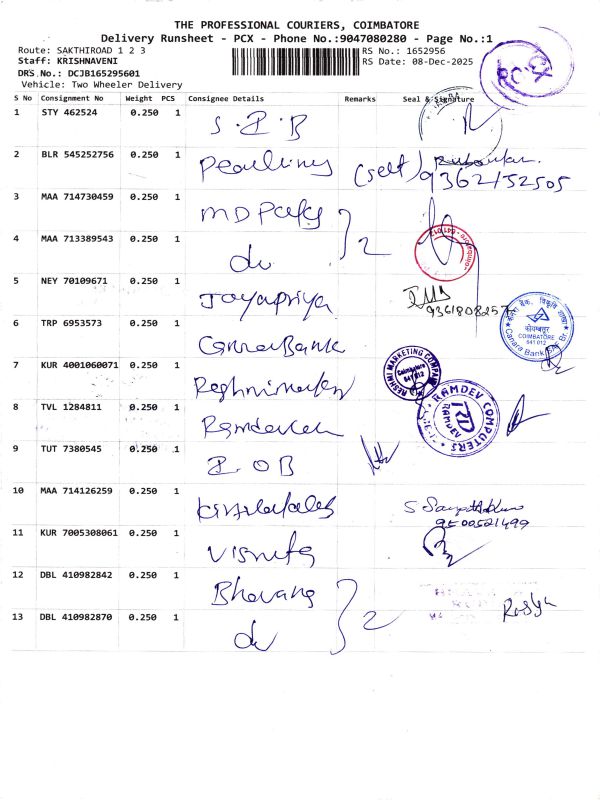 THE PROFESSIONAL COURIERS, COIMBATORE
Delivery Runsheet - PCX - Phone No.:9047080280 - Page No.:1
Route: SAKTHIROAD 1 2 3 RS No.: 1652956
Staff: KRISHNAVENI RS Date: 08-Dec-2025
DRS No.: DCJB165295601
Vehicle: Two Wheeler Delivery
PCX
S No Consignment No Weight PCS Consignee Details Remarks Seal & Signature
1 STY 462524 0.250 1
2 BLR 545252756 0.250 1 (self) 9362152505
3 MAA 714730459 0.250 1 MD
4 MAA 713389543 0.250 1 do 2
5 NEY 70109671 0.250 1 Jayapriya 9361808257
6 TRP 6953573 0.250 1 Canara Bank
केनरा बैंक
कोयम्बत्तूर
COIMBATORE
641 012
Canara Bank
7 KUR 4001060071 0.250 1
RESHMI MARKETING COMPANY
Coimbatore
641 012
8 TVL 1284811 0.250 1
RAMDEV COMPUTERS
RD
RAMDEV
9 TUT 7380545 0.250 1 I.OB
10 MAA 714126259 0.250 1 9500521499
11 KUR 7005308061 0.250 1
12 DBL 410982842 0.250 1 Bhavang
13 DBL 410982870 0.250 1 do 2